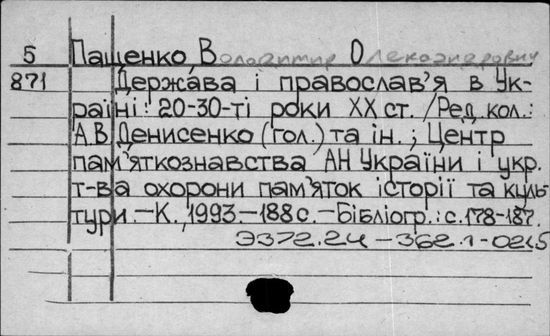 5 Пащенко, Володимир Олександрович
871 Держава і православ'я в Ук-
раїні: 20-30-ті роки XX ст. / Ред. кол.:
А.В. Денисенко (гол.) та ін.; Центр
пам'яткознавства АН України і укр.
т-ва охорони пам'яток історії та куль-
тури. – К., 1993 – 188 с. – Бібліогр.: с. 178-187.
Э372.24 – 362.1-02я5